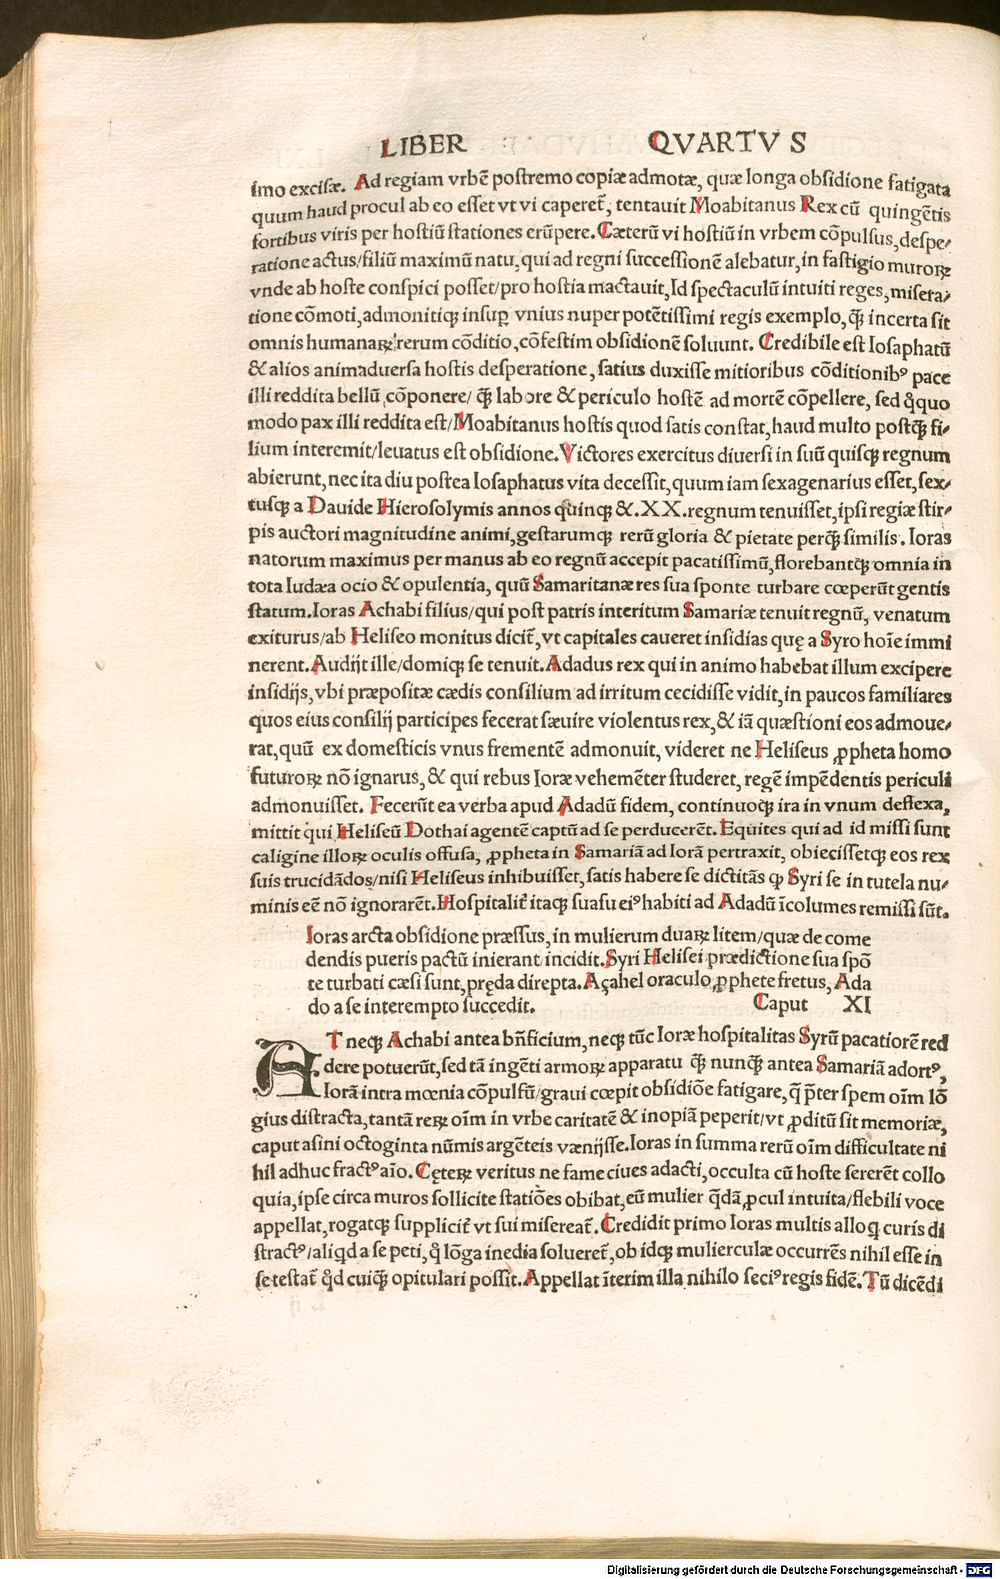 LIBER QVARTVS
imo excisæ. Ad regiam vrbē postremo copiæ admotæ, quæ longa obsidione fatigata
quum haud procul ab eo esset vt vi caperet̃, tentauit Moabitanus Rex cū quingētis
fortibus viris per hostiū stationes erūpere. Cæterū vi hostiū in vrbem cōpulsus, despe⸗
ratione actus/filiū maximū natu, qui ad regni successionē alebatur, in fastigio muroꝝ
vnde ab hoste conspici posset/pro hostia mactauit, Id spectaculū intuiti reges, misera⸗
tione cōmoti, admonitiqꝫ insuꝑ vnius nuper potētissimi regis exemplo, q̄ꝫ incerta sit
omnis humanaꝝ rerum cōditio, cōfestim obsidionē soluunt. Credibile est Iosaphatū
& alios animaduersa hostis desperatione, satius duxisse mitioribus cōditionibꝰ pace
illi reddita bellū cōponere/ q̄ꝫ labore & periculo hostē ad mortē cōpellere, sed q̊quo
modo pax illi reddita est/Moabitanus hostis quod satis constat, haud multo postq̄ꝫ fi⸗
lium interemit/leuatus est obsidione. Victores exercitus diuersi in suū quisqꝫ regnum
abierunt, nec ita diu postea Iosaphatus vita decessit, quum iam sexagenarius esset, sex⸗
tusqꝫ a Dauide Hierosolymis annos quinqꝫ &.XX.regnum tenuisset, ipsi regiæ stir⸗
pis auctori magnitudine animi, gestarumqꝫ rerū gloria & pietate perq̄ꝫ similis. Ioras
natorum maximus per manus ab eo regnū accepit pacatissimū, florebantqꝫ omnia in
tota Iudæa ocio & opulentia, quū Samaritanæ res sua sponte turbare cœperūt gentis
statum. Ioras Achabi filius/qui post patris interitum Samariæ tenuit regnū, venatum
exiturus/ab Heliseo monitus dicit̃, vt capitales caueret insidias quę a Syro hoīe immi
nerent. Audijt ille/domiqꝫ se tenuit. Adadus rex qui in animo habebat illum excipere
insidijs, vbi præpositæ cædis consilium ad irritum cecidisse vidit, in paucos familiares
quos eius consilij participes fecerat sæuire violentus rex, & iā quæstioni eos admoue⸗
rat, quū ex domesticis vnus frementē admonuit, videret ne Heliseus ꝓpheta homo
futuroꝝ nō ignarus, & qui rebus Ioræ vehemēter studeret, regē impēdentis periculi
admonuisset. Fecerūt ea verba apud Adadū fidem, continuoqꝫ ira in vnum deflexa,
mittit qui Heliseū Dothai agentē captū ad se perducerēt. Equites qui ad id missi sunt
caligine illoꝝ oculis offusa, ꝓpheta in Samariā ad Iorā pertraxit, obiecissetqꝫ eos rex
suis trucidādos/nisi Heliseus inhibuisset, satis habere se dictitās ꝙ Syri se in tutela nu⸗
minis eē nō ignorarēt. Hospitalit̃ itaqꝫ suasu eiꝰ habiti ad Adadū īcolumes remissi sūt.
Ioras arcta obsidione præssus, in mulierum duaꝝ litem/quæ de come
dendis pueris pactū inierant incidit. Syri Helisei prædictione sua spō
te turbati cæsi sunt, pręda direpta. Açahel oraculo ꝓphete fretus, Ada
do a se interempto succedit. Caput XI
AT neqꝫ Achabi antea bn̄ficium, neqꝫ tūc Ioræ hospitalitas Syrū pacatiorē red
dere potuerūt, sed tā ingēti armoꝝ apparatu q̄ꝫ nunq̄ꝫ antea Samariā adortꝰ,
Iorā intra mœnia cōpulsū/graui cœpit obsidiōe fatigare, q̄ p̄ter spem oīm lō
gius distracta, tantā reꝝ oīm in vrbe caritatē & inopiā peperit/vt ꝓditū sit memoriæ,
caput asini octoginta nūmis argēteis vænijsse. Ioras in summa rerū oīm difficultate ni
hil adhuc fractꝰ aīo. Cęteꝝ veritus ne fame ciues adacti, occulta cū hoste sererēt collo
quia, ipse circa muros sollicite statiōes obibat, eū mulier q̄dā ꝓcul intuita/flebili voce
appellat, rogatqꝫ supplicit̃ vt sui misereat̃. Credidit primo Ioras multis alloq curis di
stractꝰ/aliqd a se peti, q̊ lōga inedia solueret̃, ob idqꝫ mulierculæ occurrēs nihil esse in
se testat̃ q̊d cuiqꝫ opitulari possit. Appellat īterim illa nihilo seciꝰ regis fidē. Tū dicēdi
Digitalisierung gefördert durch die Deutsche Forschungsgemeinschaft - DFG